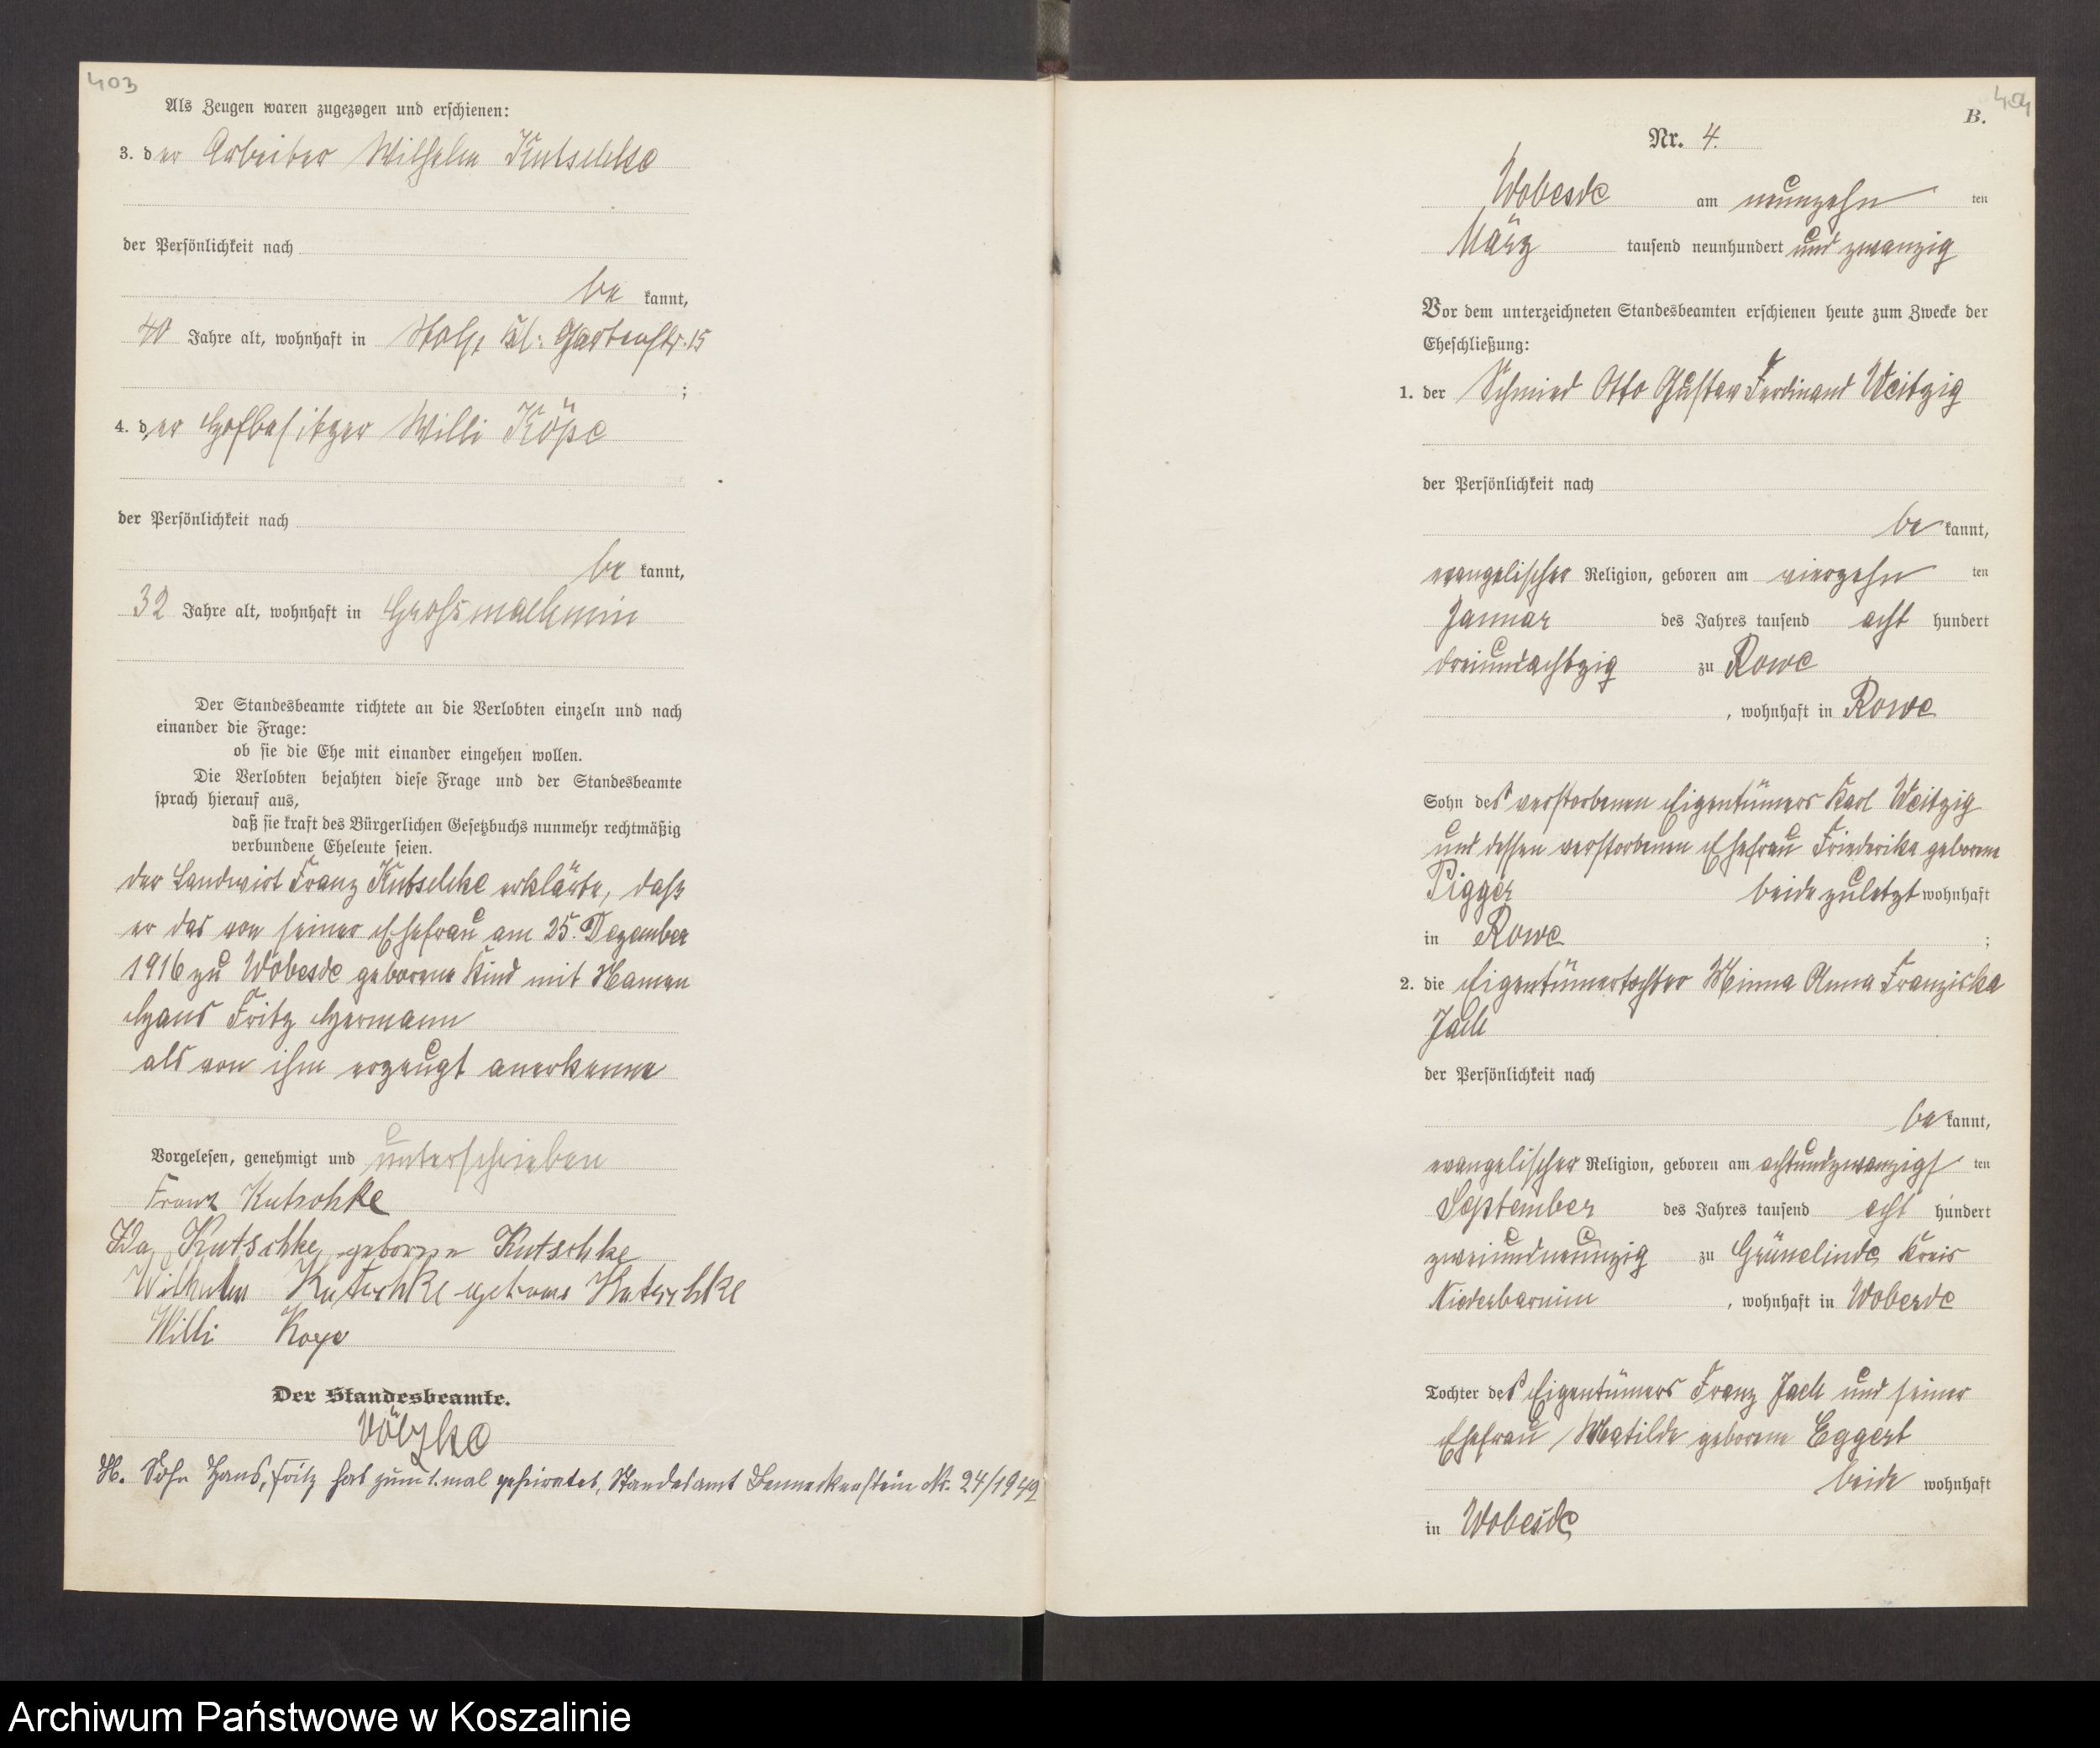 403
Als Zeugen waren zugezogen und erschienen:
3. der Arbeiter Wilhelm Kutschke
der Persönlichkeit nach
be kannt,
40 Jahre alt, wohnhaft in Stolp, kl. Gartenstr. 15
;
4. der Hofbesitzer Willi Köpe
der Persönlichkeit nach
be kannt,
32 Jahre alt, wohnhaft in Grossmachmin
Der Standesbeamte richtete an die Verlobten einzeln und nach
einander die Frage:
ob sie die Ehe mit einander eingehen wollen.
Die Verlobten bejahten diese Frage und der Standesbeamte
sprach hierauf aus,
daß sie kraft des Bürgerlichen Gesetzbuchs nunmehr rechtmäßig
verbundene Eheleute seien.
der Landwirt Franz Kutschke erklärte, dass
er das von seiner Ehefrau am 25. Dezember
1916 zu Wobesde geborene Kind mit Namen
Hans Fritz Hermann
als von ihm erzeugt anerkenne
Vorgelesen, genehmigt und unterschrieben
Franz Kutschke
Ida Kutschke geborene Kutschke
Wilhelm Kutschke Kutschke
Willi Kope
Der Standesbeamte.
H. Sohn Hans, Fritz hat zum 1. mal geheiratet, Standesamt Benneckenstein Nr. 24/1942
404
B.
Nr. 4.
Wobesde am neunzehn ten
März tausend neunhundert und zwanzig
Vor dem unterzeichneten Standesbeamten erschienen heute zum Zwecke der
Eheschließung:
1. der Schmied Otto Gustav Ferdinand Weitzig
der Persönlichkeit nach
be kannt,
evangelischer Religion, geboren am vierzehn ten
Januar des Jahres tausend acht hundert
dreiundachtzig zu Rowe
, wohnhaft in Rowe
Sohn des verstorbenen Eigentümers Karl Weitzig
und dessen verstorbenen Ehefrau Friederike geborene
Pigger beide zuletzt wohnhaft
in Rowe ;
2. die Eigentümertochter Minna Anna Franziska
Jach
der Persönlichkeit nach
be kannt,
evangelischer Religion, geboren am achtundzwanzigs ten
September des Jahres tausend acht hundert
zweiundneunzig zu Grünelinde Kreis
Niederbarnim , wohnhaft in Wobesde
Tochter des Eigentümers Franz Jach und seiner
Ehefrau Matilde geborene Eggert
beide wohnhaft
in Wobesde
Archiwum Państwowe w Koszalinie